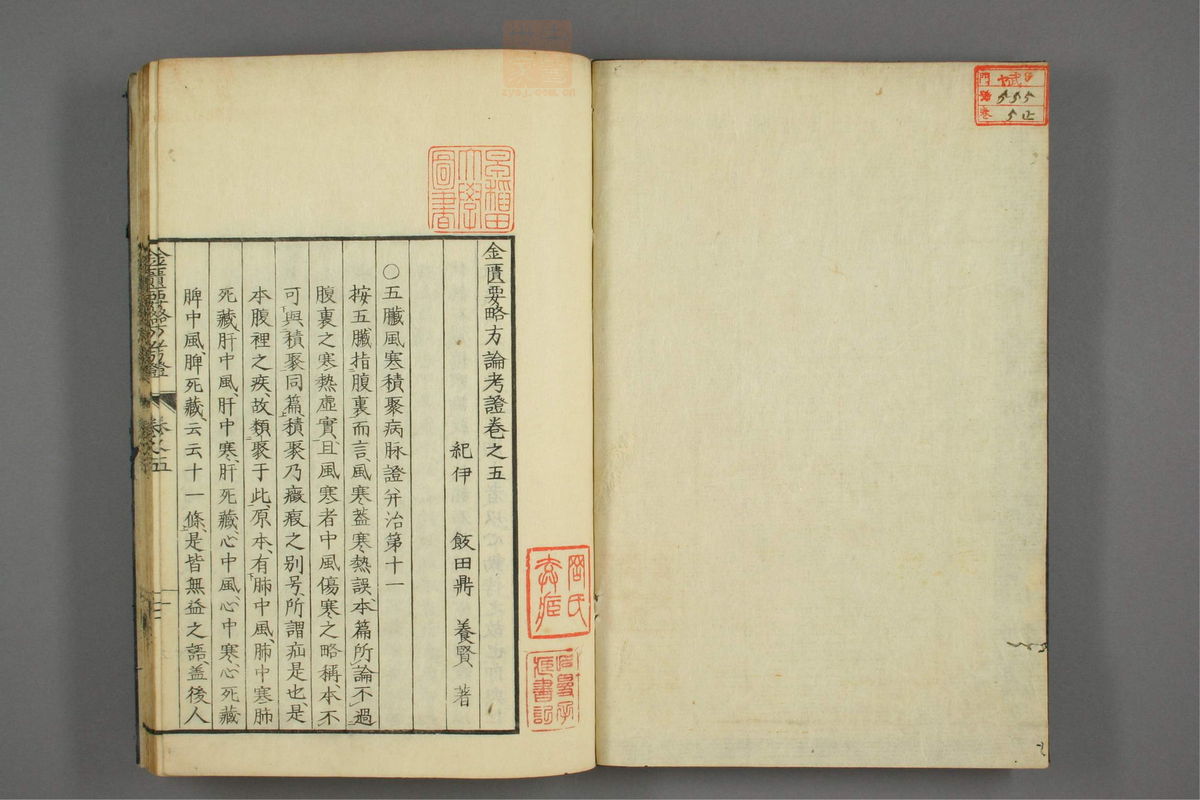 金匱要略方論考證卷之五
紀伊 飯田鼎 養賢 著
〇五臟風寒積聚病脉證并治第十一
按五臟、指腹裏而言、風寒蓋寒熱誤、本篇所論不過
腹裏之寒熱虛實、且風寒者中風傷寒之略稱、本不
可與積聚同篇、積聚乃癥瘕之別号、所謂疝是也、是
本腹裡之疾、故類聚于此、原本有肺中風、肺中寒肺
死藏、肝中風、肝中寒、肝死藏、心中風、心中寒、心死藏
脾中風、脾死藏、云云十一條、是皆無益之語、盖後人
金匱要略方考證
卷之五
早稻田大學圖書
門
號
卷
555
5止